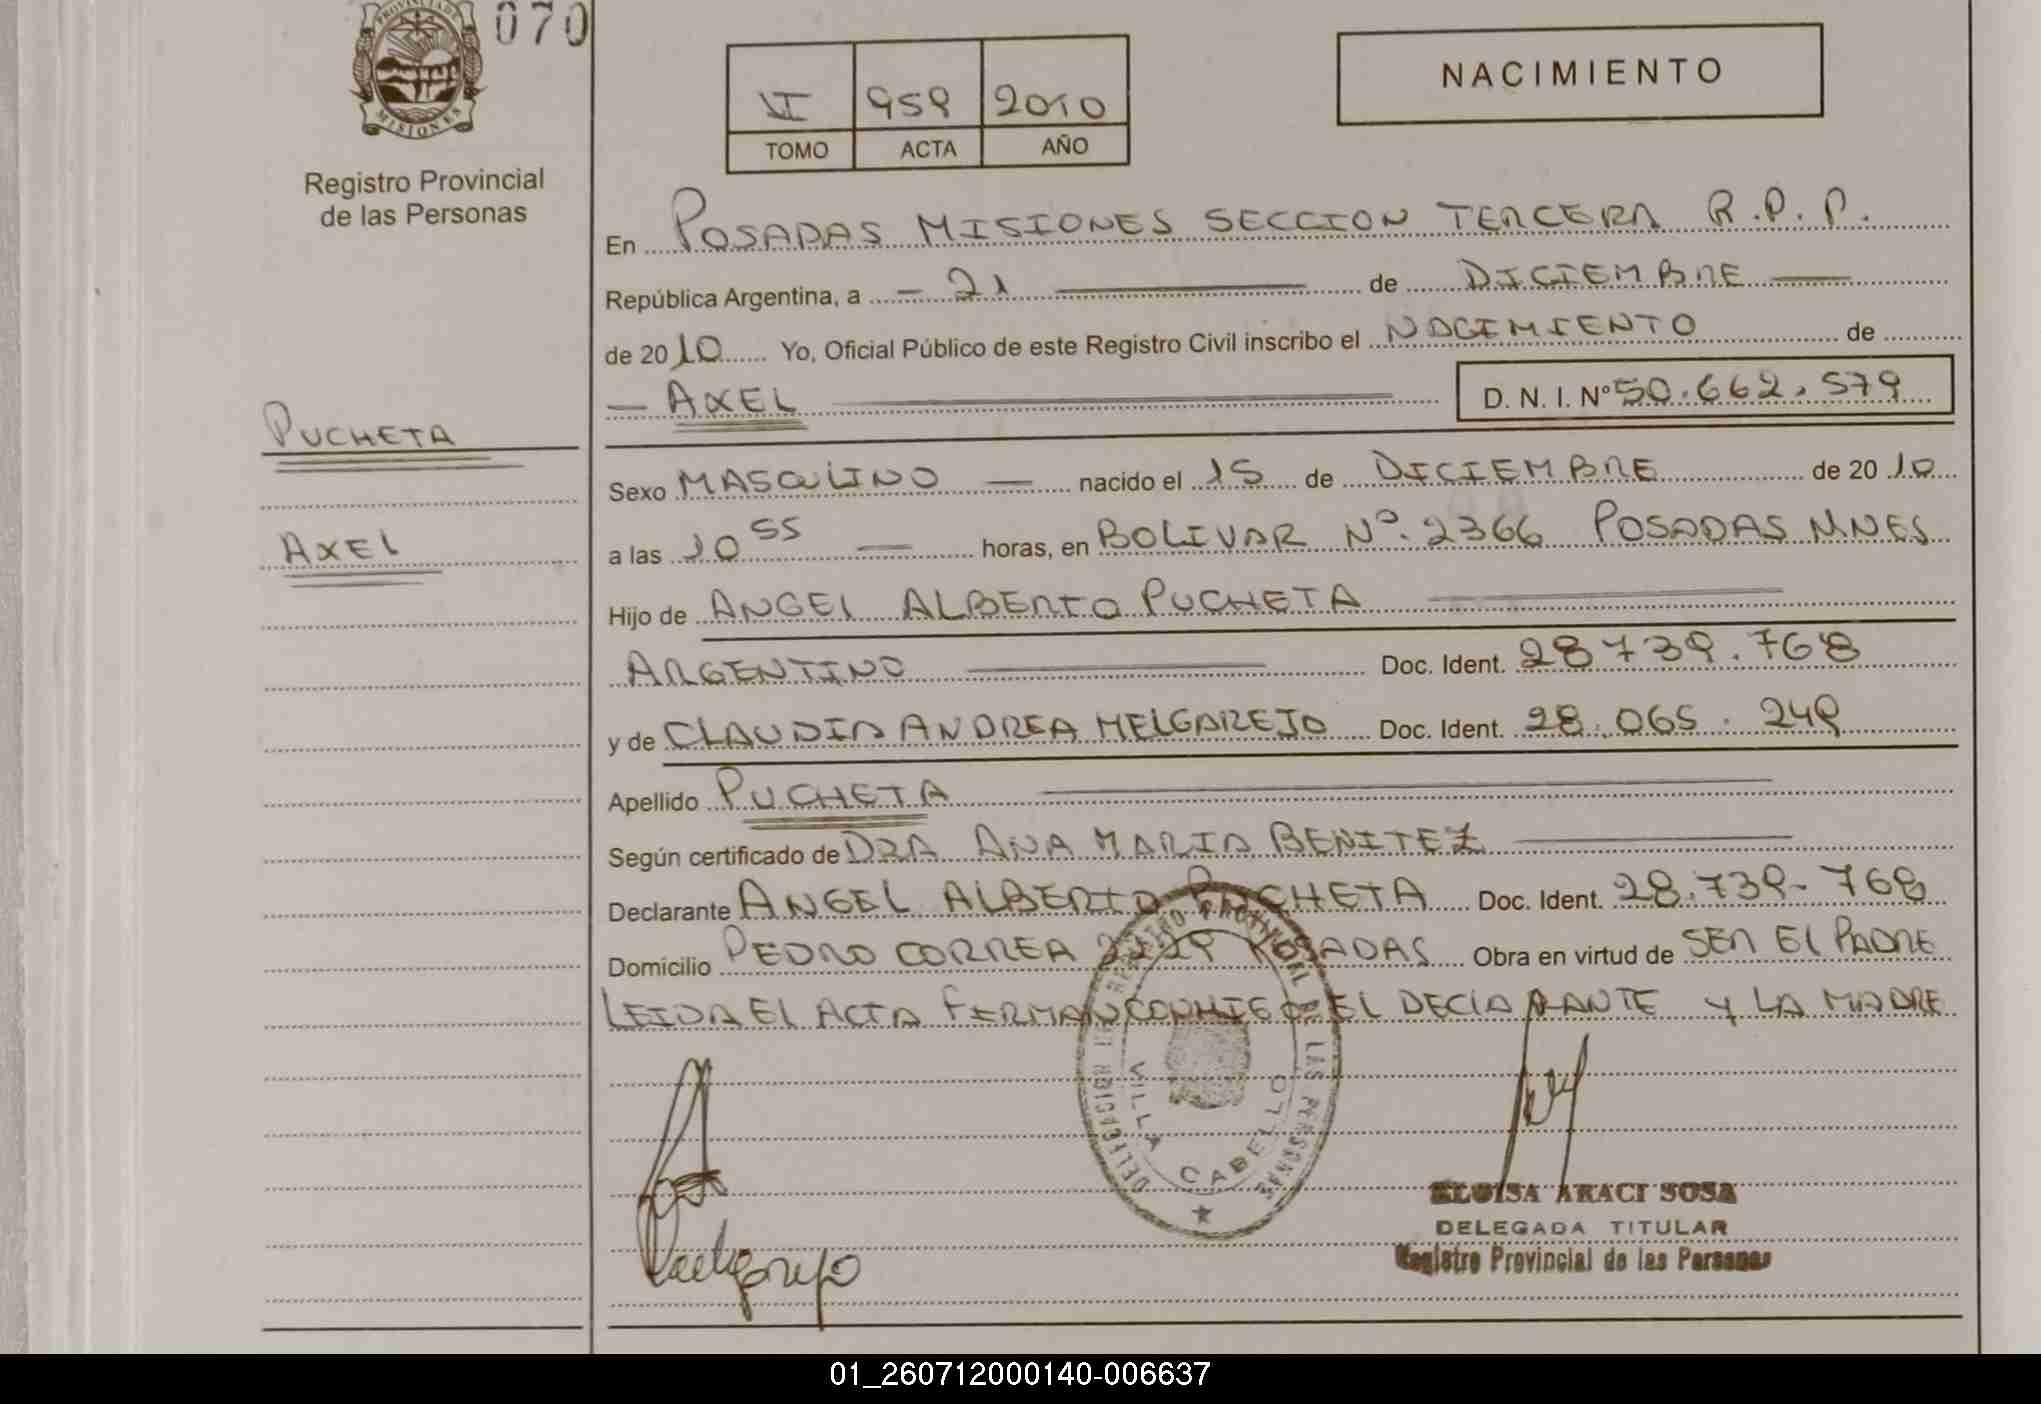 070
PROVINCIA DE
MISIONES
Registro Provincial
de las Personas
VI 959 2010
TOMO ACTA AÑO
NACIMIENTO
En POSADAS MISIONES SECCION TERCERA R.P.P.
República Argentina, a - 21 de DICIEMBRE
de 2010 Yo, Oficial Público de este Registro Civil inscribo el NACIMIENTO de
AXEL D. N. I. Nº 50.662.579
PUCHETA
AXEL
Sexo MASCULINO nacido el 15 de DICIEMBRE de 2010
a las 10 55 horas, en BOLIVAR Nº. 2366 POSADAS MNES
Hijo de ANGEL ALBERTO PUCHETA
ARGENTINO Doc. Ident. 28 739.768
y de CLAUDIA ANDREA MELGAREJO Doc. Ident. 28.065.249
Apellido PUCHETA
Según certificado de DRA ANA MARIA BENITEZ
Declarante ANGEL ALBERTO PUCHETA Doc. Ident. 28.739-768
Domicilio PEDRO CORREA POSADAS Obra en virtud de SER EL PADRE
LEIDA EL ACTA FIRMAN CONMIGO EL DECLARANTE Y LA MADRE
DELEGACION REGISTRO PROVINCIAL DE LAS PERSONAS
VILLA CABELLO
ELOISA ARACI SOSA
DELEGADA TITULAR
Registro Provincial de las Personas
01_260712000140-006637